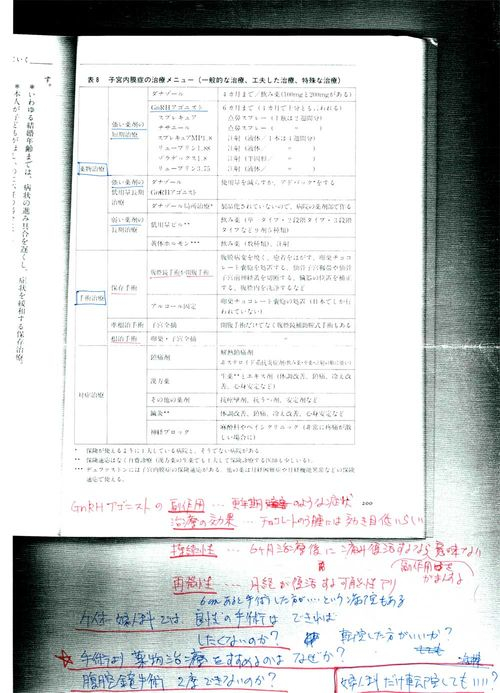 す。
＊いわゆる結婚年齢までは、病状の進み具合を遅くし、症状を緩和する保存治療。
表8 子宮内膜症の治療メニュー（一般的な治療、工夫した治療、特殊な治療）
薬物治療
強い薬剤の短期治療
ダナゾール
4カ月まで／飲み薬（100mgと200mgがある）
GnRHアゴニスト
スプレキュア
点鼻スプレー（1瓶は2週間分）
ナサニール
点鼻スプレー（ 〃 ）
スプレキュアMP1.8
注射（液体／1本は4週間分）
リュープリン1.88
注射（液体／ 〃 ）
ゾラデックス1.8
注射（半固形／ 〃 ）
リュープリン3.75
注射（液体／ 〃 ）
強い薬剤の低用量長期治療
ダナゾール
GnRHアゴニスト
使用量を減らすか、アドバック*をする
ダナゾール局所治療*
製品化されていないので、病院の薬剤部で作る
弱い薬剤の長期治療
低用量ピル**
飲み薬（一相タイプ・2段階タイプ・3段階タイプなど
黄体ホルモン***
飲み薬（数種類）、注射
手術治療
保存手術
腹腔鏡手術か開腹手術
アルコール固定
卵巣チョコレート嚢胞の処置（日本でしか行われていない）
準根治手術
子宮全摘
開腹手術だけでなく腹腔鏡補助腟式手術もある
根治手術
卵巣・子宮全摘
〃
対症治療
鎮痛剤
解熱鎮痛剤
漢方薬
生薬**とエキス剤（体調改善、鎮痛、冷え改善、心身安定など）
その他の薬剤
抗痙攣剤、抗うつ剤、安定剤など
鍼灸**
体調改善、鎮痛、冷え改善、心身安定など
神経ブロック
麻酔科やペインクリニック（非常に疼痛が激しい場合に）
* 保険が使えるように工夫している病院と、そうでない病院がある。
** 保険適応はなく自費診療（漢方薬の生薬でも工夫して保険診療する医師も少しいる）。
*** デュファストンには子宮内膜症の保険適応がある。他の薬は月経困難症や月経機能異常などの保険適応で使える。
200
GnRHアゴニストの副作用 … 更年期 のような症状
治療の効果 … チョコレートのう腫には効き目低いらしい
持続性 … 6ヶ月治療後に痛み復活するなら意味ない
副作用
がまんする
再発性 … 月経が復活する可能性アリ
6cmあると手術した方が…という病院もある
婦人科では 良性の手術は できれば
したくないのか？ 転院した方がいいか？
☆手術より 薬物治療をすすめるのは なぜか？
腹腔鏡手術 2度できないのか？
婦人科だけ転院してもいい!!